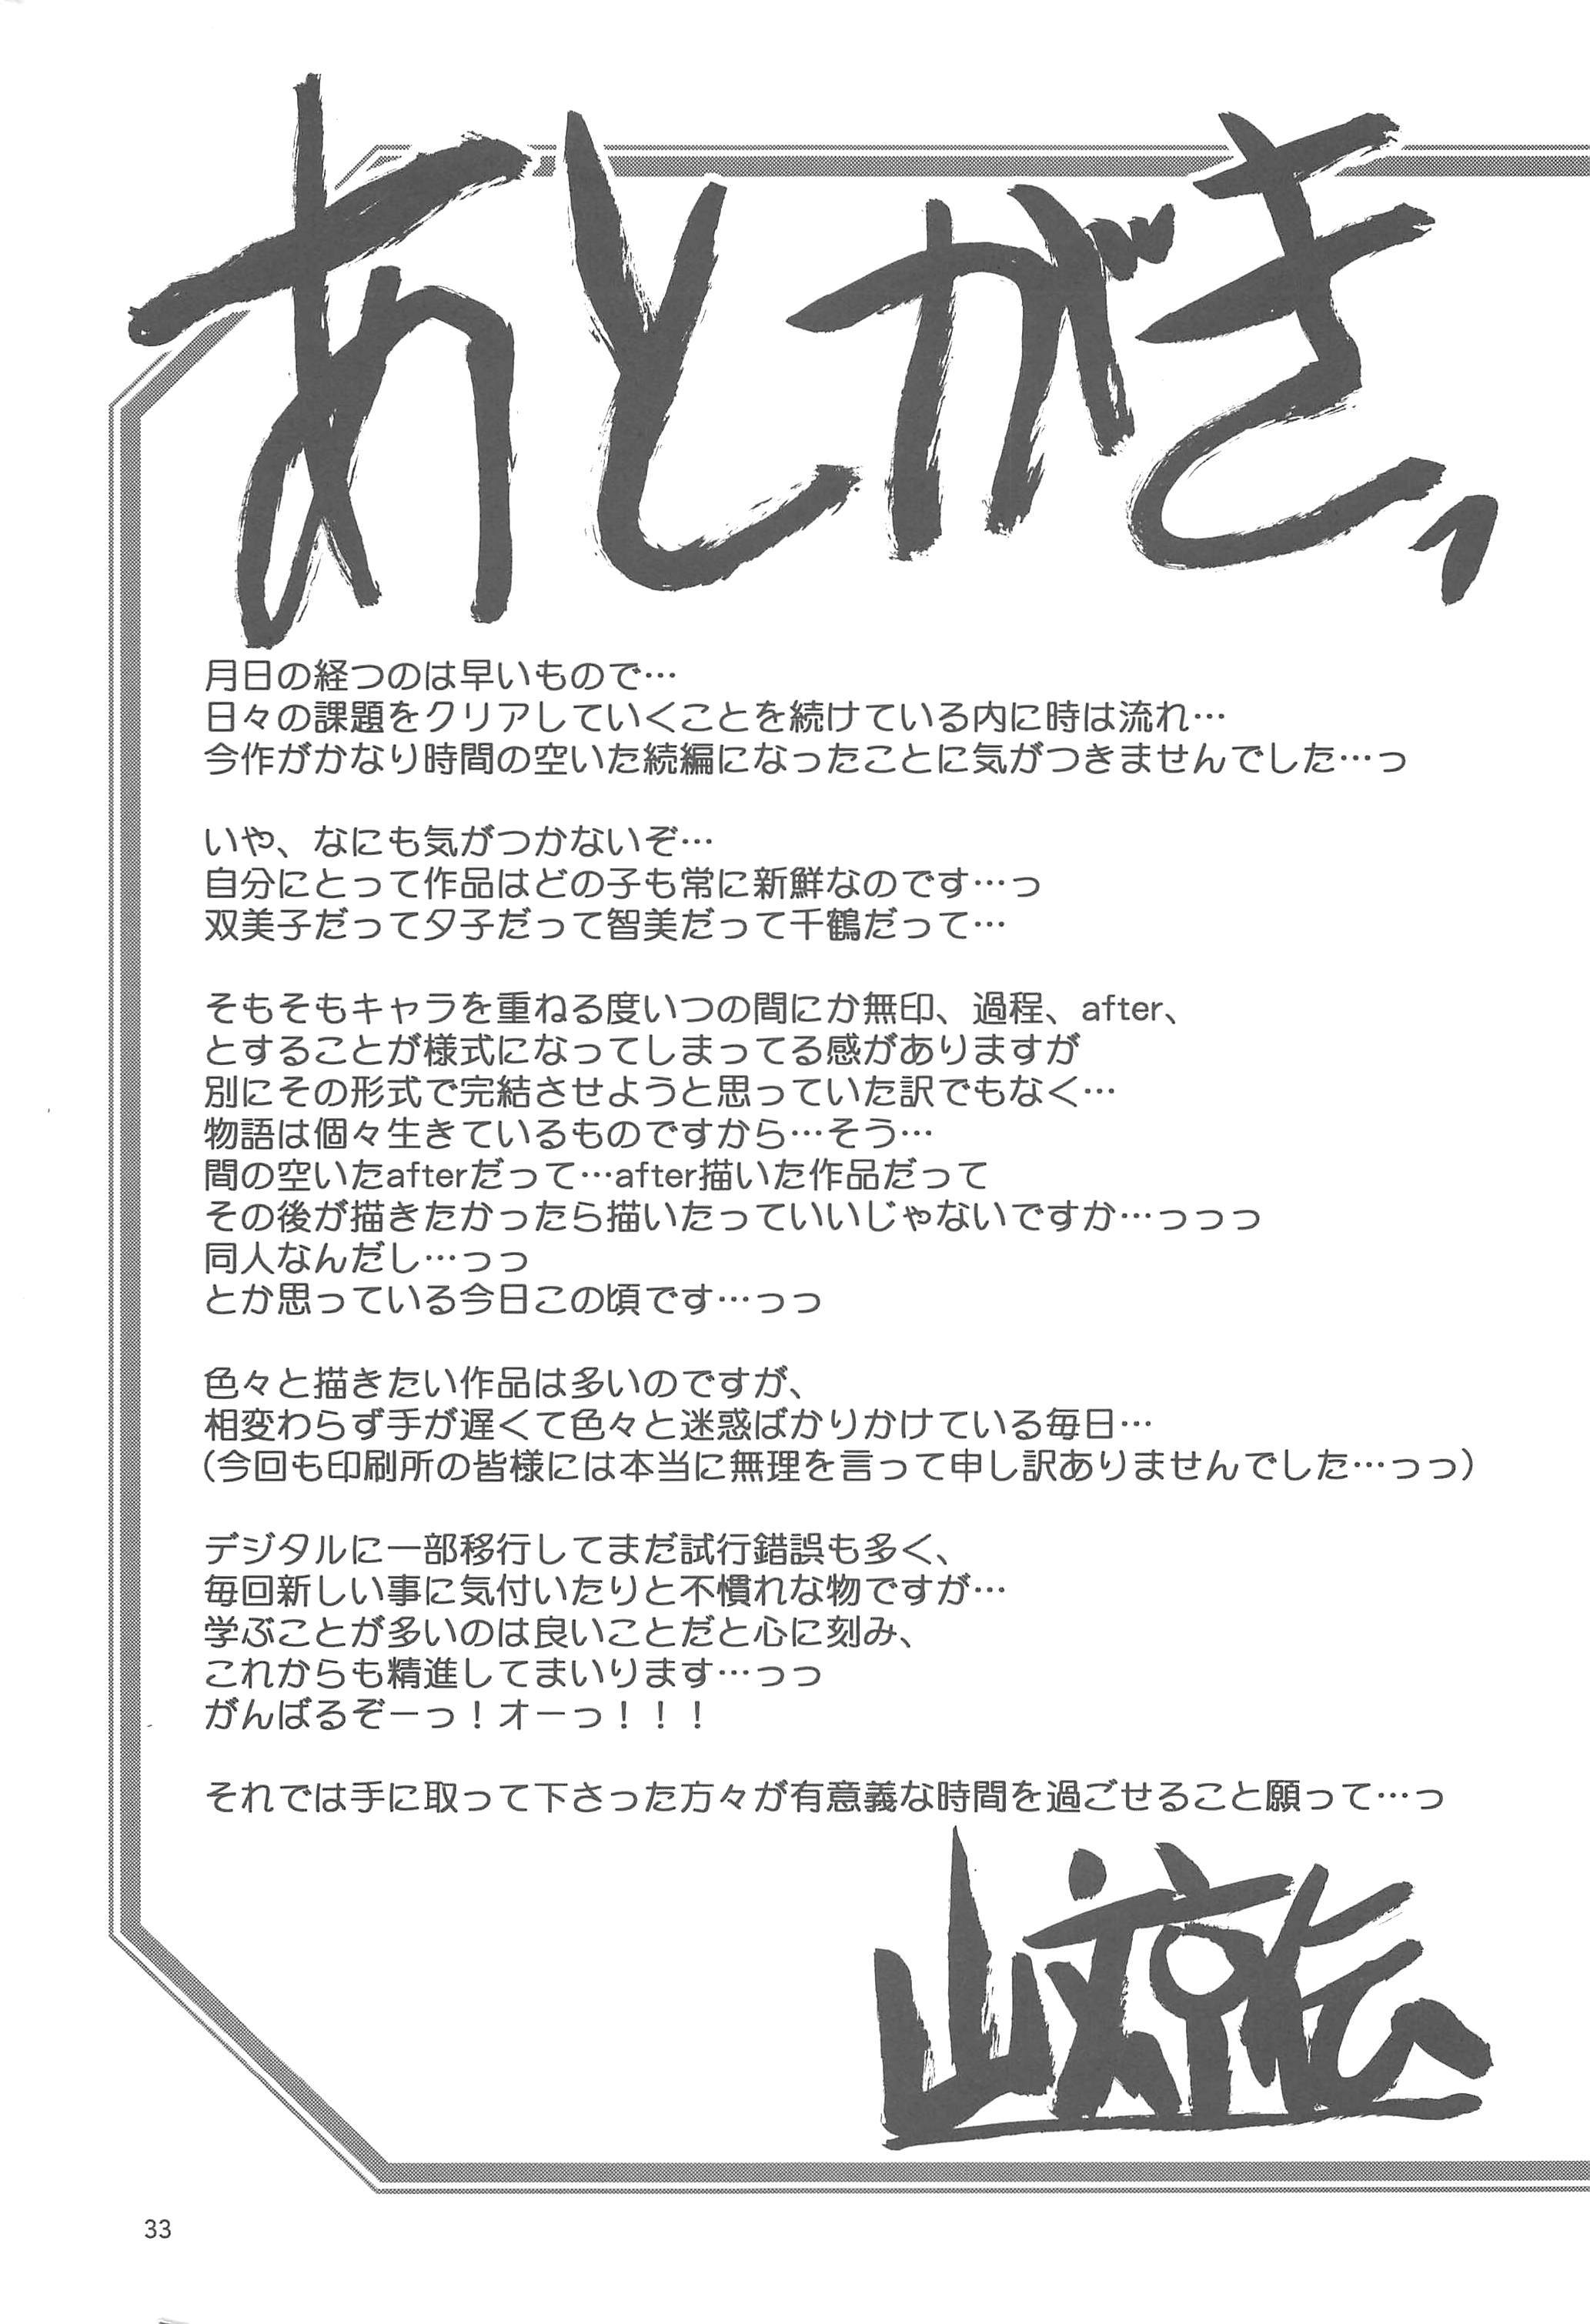 あとがきっ
月日の経つのは早いもので…
日々の課題をクリアしていくことを続けている内に時は流れ…
今作がかなり時間の空いた続編になったことに気がつきませんでした…っ
いや、なにも気がつかないぞ…
自分にとって作品はどの子も常に新鮮なのです…っ
双美子だって夕子だって智美だって千鶴だって…
そもそもキャラを重ねる度いつの間にか無印、過程、after、
とすることが様式になってしまってる感がありますが
別にその形式で完結させようと思っていた訳でもなく…
物語は個々生きているものですから…そう…
間の空いたafterだって…after描いた作品だって
その後が描きたかったら描いたっていいじゃないですか…っっっ
同人なんだし…っっ
とか思っている今日この頃です…っっ
色々と描きたい作品は多いのですが、
相変わらず手が遅くて色々と迷惑ばかりかけている毎日…
(今回も印刷所の皆様には本当に無理を言って申し訳ありませんでした…っっ)
デジタルに一部移行してまだ試行錯誤も多く、
毎回新しい事に気付いたりと不慣れな物ですが…
学ぶことが多いのは良いことだと心に刻み、
これからも精進してまいります…っっ
がんばるぞーっ！オーっ！！！
それでは手に取って下さった方々が有意義な時間を過ごせること願って…っ
33